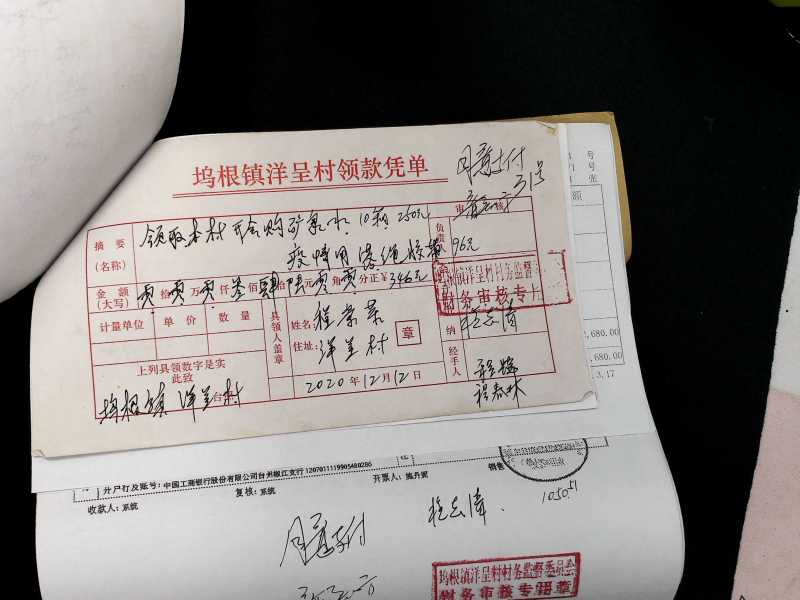 坞根镇洋呈村领款凭单
同意支付
31号
摘要
(名称)
领取本村开会购矿泉水10箱250元
疫情用漆绳胶 96元
负责
审核
金额
(大写)
零拾零万零仟叁佰肆拾陆元零角零分正¥346元
计量单位 单价 数量
具领人盖章
姓名:
住址: 洋呈村
章
纳
经手人
上列具领数字是实
此致
坞根镇洋呈村
2020年12月12日
程春林
坞根镇洋呈村村务监督
财务审核专
号
号
张
额
,680.00
,680.00
.3.17
开户行及账号: 中国工商银行股份有限公司台州椒江支行 1207011119905480286
收款人: 系统 复核: 系统 开票人: 施丹妮 销售
同意支付
10501
坞根镇洋呈村村务监督委员会
财务审核专用章